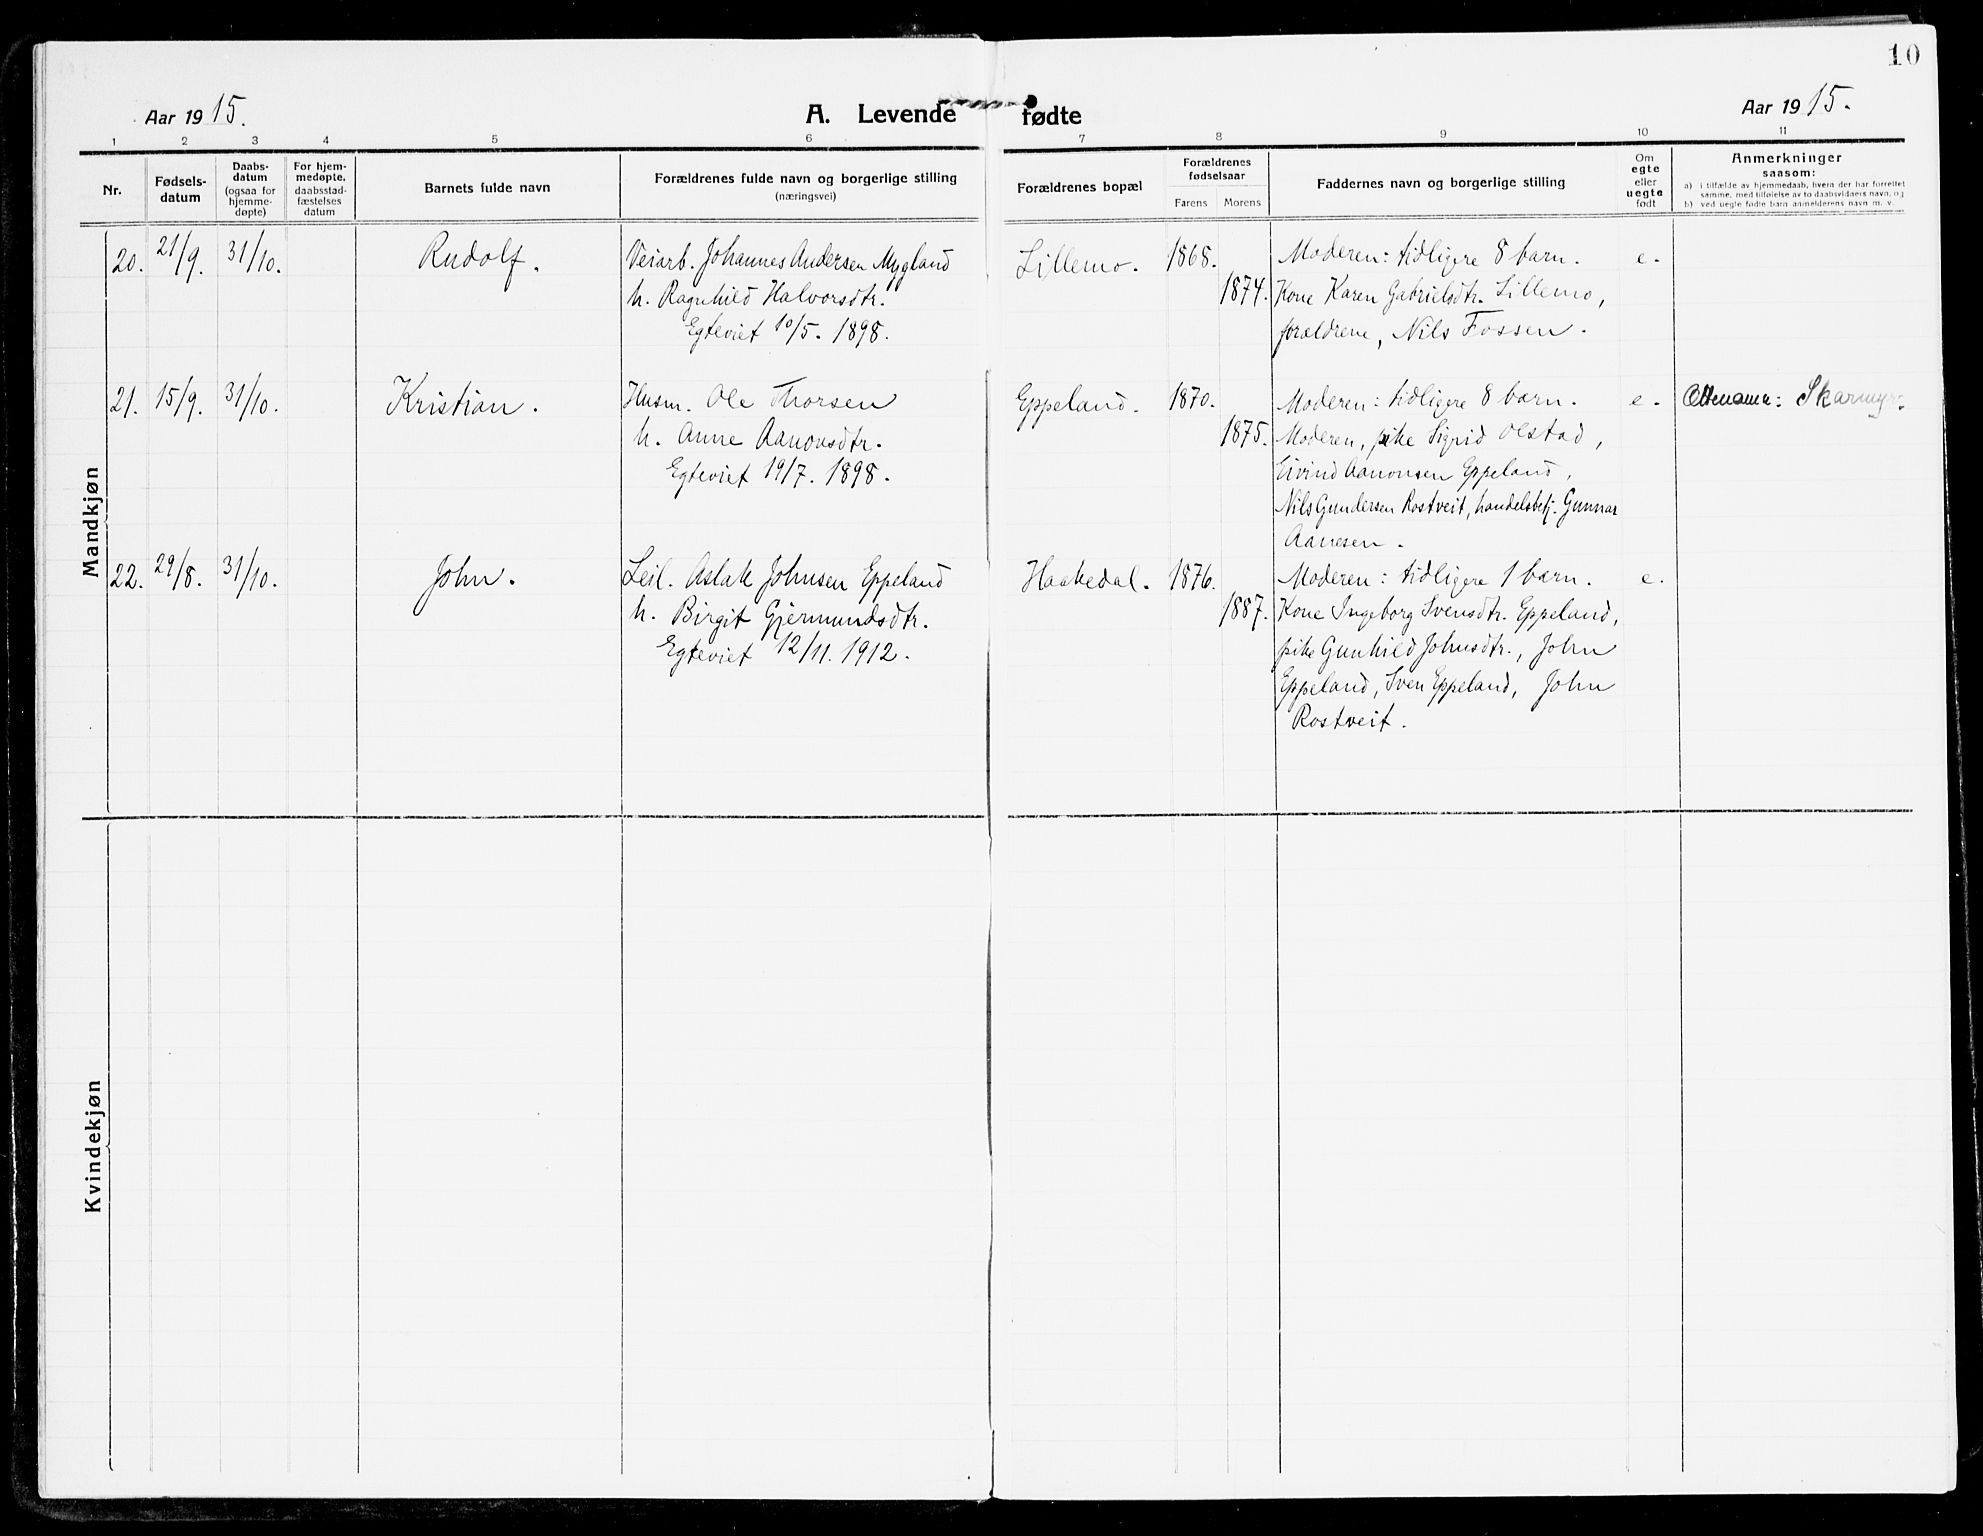 10
Aar 1915.
A. Levende fødte
Aar 1915.
1 2 3 4 5 6 7 8 9 10 11
Nr.
Fødsels-
datum
Daabs-
datum
(ogsaa for
hjemme-
døpte)
For hjem-
medøpte,
daabsstad-
fæstelses
datum
Barnets fulde navn
Forældrenes fulde navn og borgerlige stilling
(næringsvei)
Forældrenes bopæl
Forældrenes
fødselsaar
Farens
Morens
Faddernes navn og borgerlige stilling
Om
egte
eller
uegte
født
Anmerkninger
saasom:
a) i tilfælde av hjemmedaab, hvem der har forrettet
samme, med tilføielse av to daabsvidners navn, og
b) ved uegte fødte barn anmelderens navn m. v.
Mandkjøn
20. 21/9. 31/10. Rudolf. Veiarb. Johannes Andersen Mygland
h. Ragnhild Halvorsdtr.
Egteviet 10/5. 1898.
Lillemo. 1868. 1874.
Moderen: tidligere 8 barn. e.
Kone Karen Gabrielsdtr. Lillemo,
forældrene, Nils Fossen.
21. 15/9. 31/10. Kristian. Husm. Ole Thorsen
h. Anne Aanonsdtr.
Egteviet 19/7. 1898.
Eppeland. 1870. 1875.
Moderen: tidligere 8 barn. e.
Moderen, pike Sigrid Olstad,
Eivind Aanonsen Eppeland,
Nils Gundersen Rostveit, handelsbetj. Gunnar
Aanesen.
Ættenamn: Skarmyr.
22. 29/8. 31/10. John. Leil. Aslak Johnsen Eppeland
h. Birgit Gjermundsdtr.
Egteviet 12/11. 1912.
Haakedal. 1876. 1887.
Moderen: tidligere 1 barn. e.
Kone Ingeborg Svensdtr. Eppeland,
pike Gunhild Johnsdtr., John
Eppeland, Sven Eppeland, John
Rostveit.
Kvindekjøn